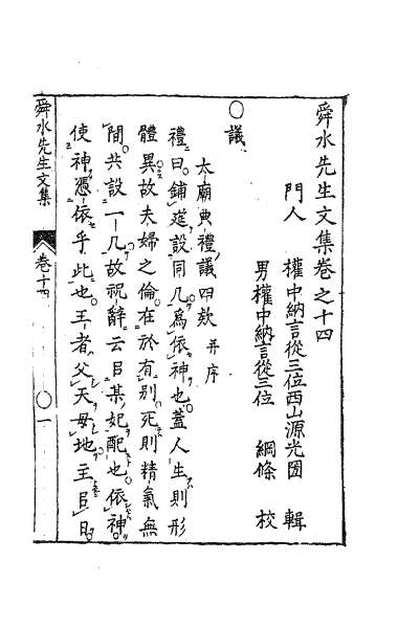 舜水先生文集卷之十四
門人　權中納言從三位西山源光圀　輯
男權中納言從三位　綱條　校
○議
太廟典禮議四款 并序
禮曰鋪筵設同几爲依神也蓋人生則形
體異故夫婦之倫在於有別死則精氣無
間共設一几故祝辭云以某妃配也依神
使神憑依乎此也王者父天母地主日
舜水先生文集　卷十四　○一